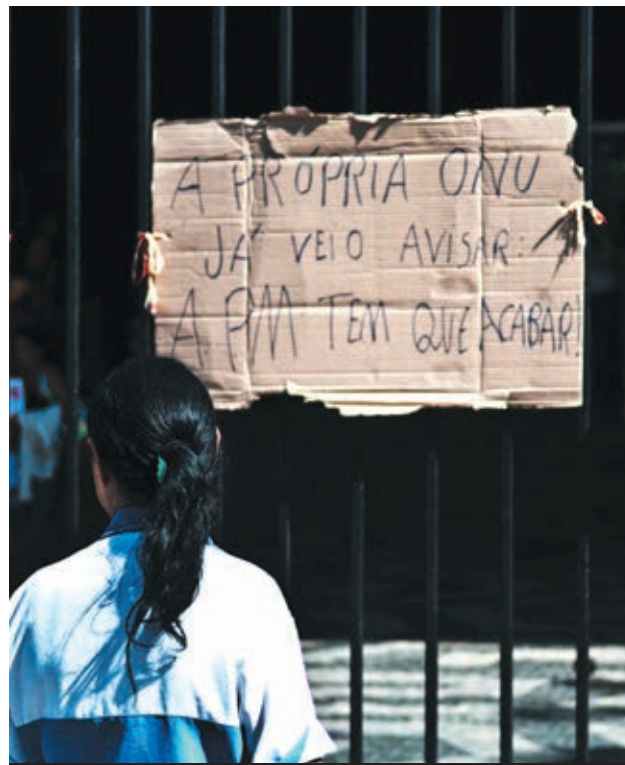 A PRÓPRIA ONU
JÁ VEIO AVISAR:
A PM TEM QUE ACABAR!